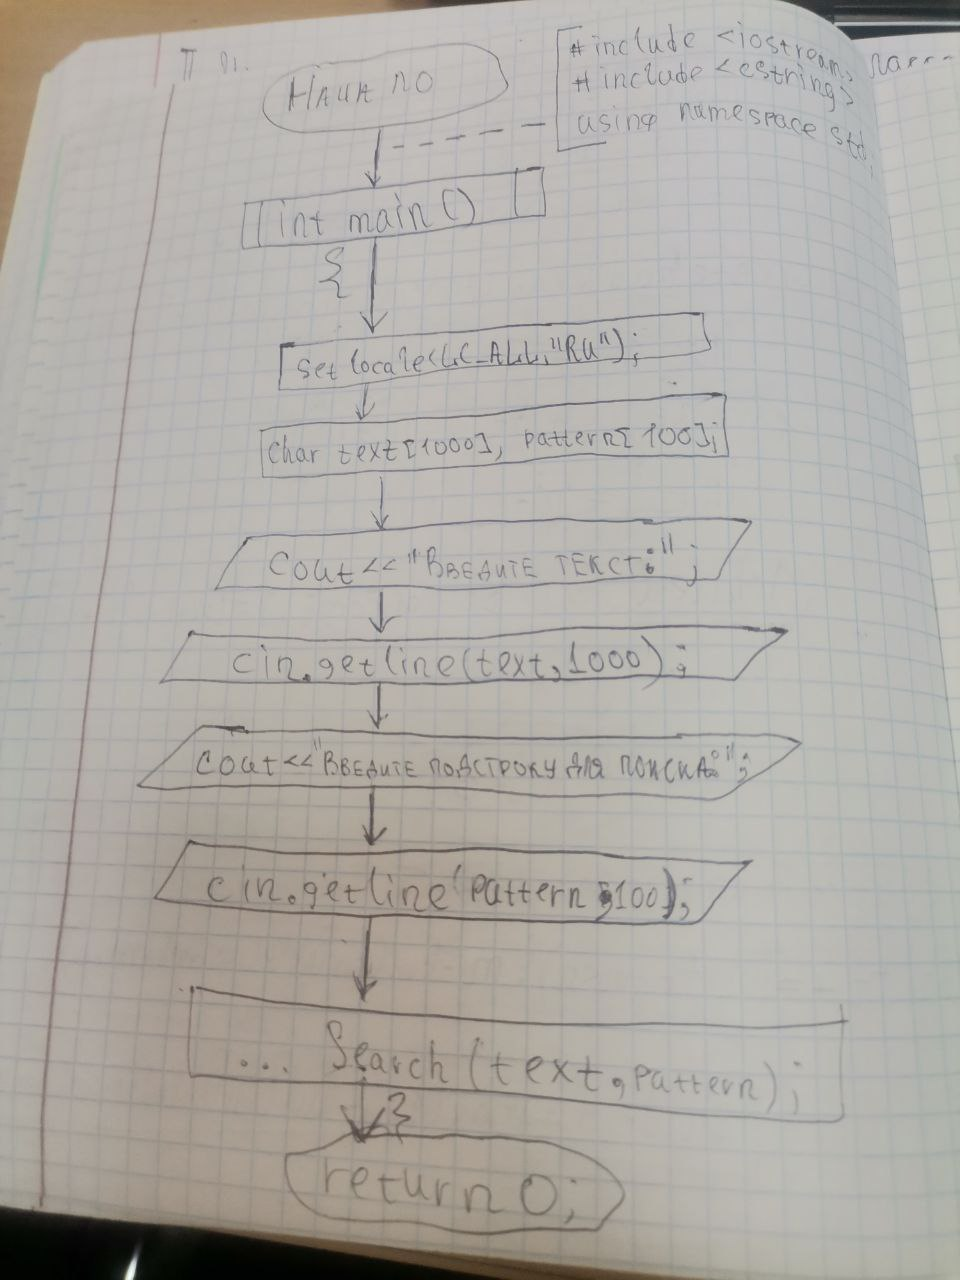 НАЧАЛО
#include <iostream>
#include <cstring>
using namespace std;
int main()
{
setlocale(LC_ALL,"RU");
char text[1000], pattern[100];
Cout<<"ВВЕДИТЕ ТЕКСТ:";
cin.getline(text,1000);
Cout<<"ВВЕДИТЕ ПОДСТРОКУ ДЛЯ ПОИСКА:";
cin.getline(pattern,100);
... Search(text,pattern);
}
return 0;